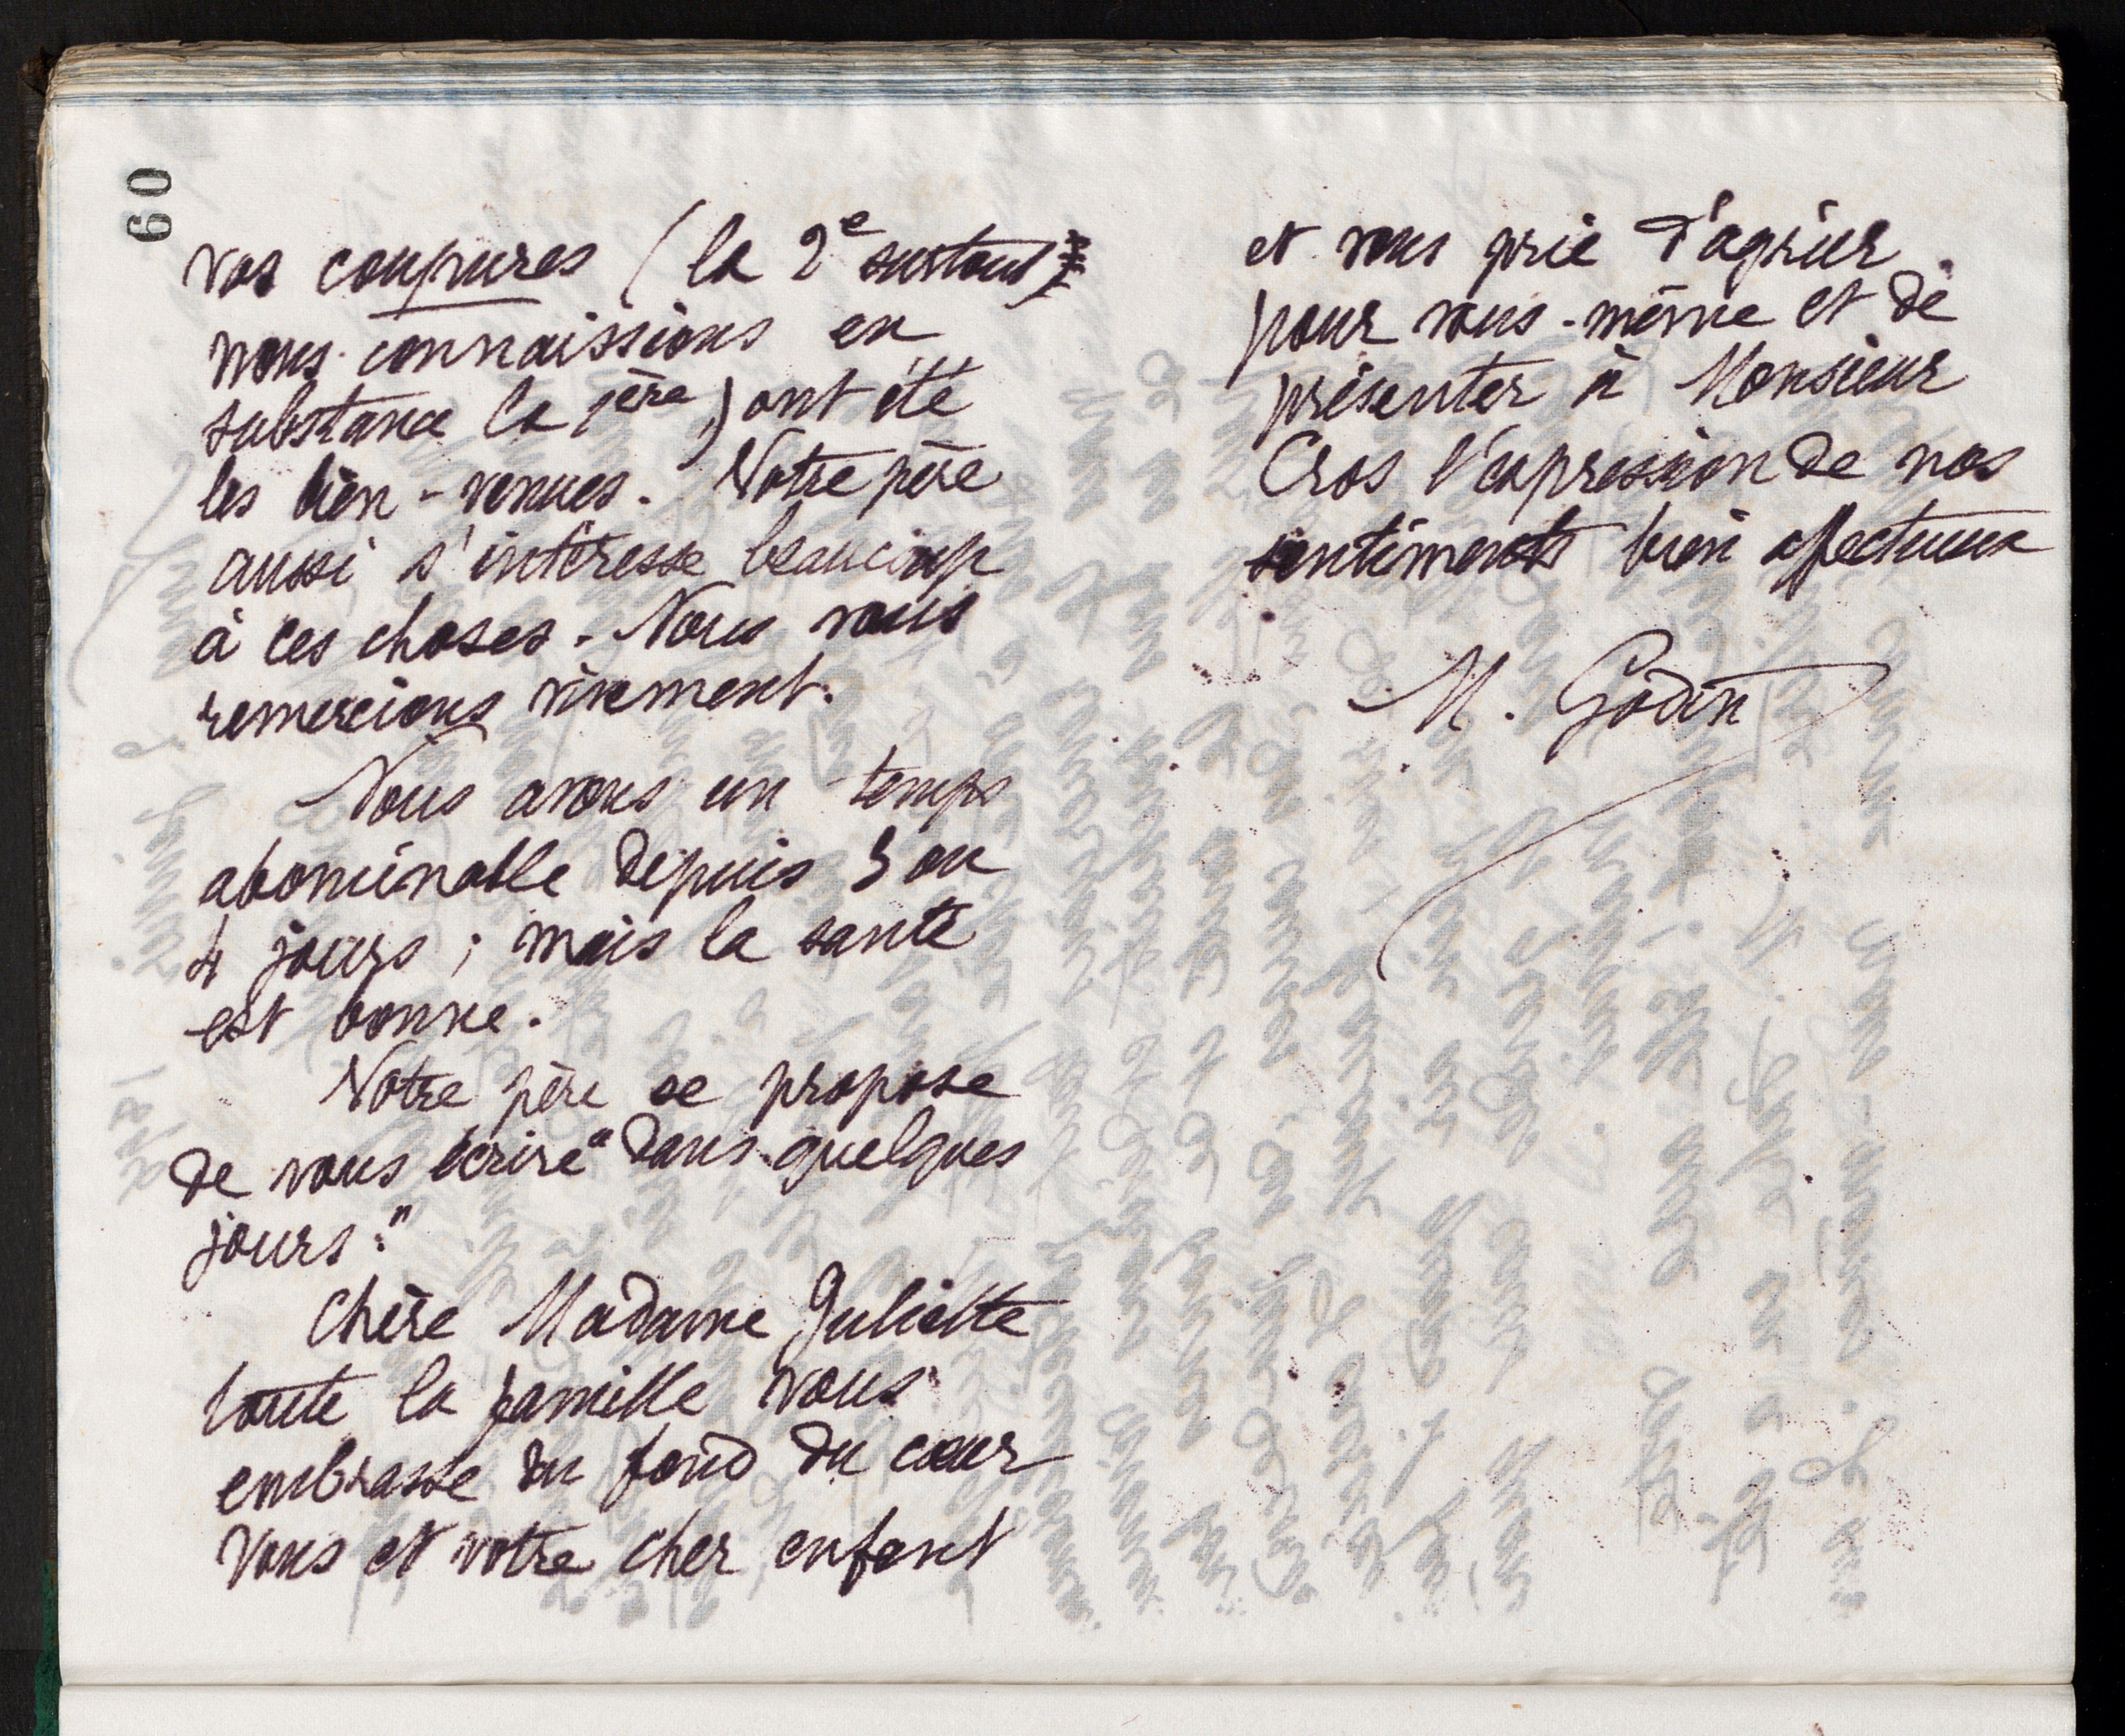 60
vos coupures (la 2e surtout)
nous connaissions en
substance la 1ère,) ont été
les bien-venues. Notre père
aussi s'intéresse beaucoup
à ces choses. Nous vous
remercions vivement.
Nous avons un temps
abominable depuis 3 ou
4 jours ; mais la santé
est bonne.
Notre père se propose
de vous écrire "dans quelques
jours."
Chère Madame Juliette
toute la famille vous
embrasse du fond du cœur
vous et votre cher enfant
et vous prie d'agréer
pour vous-même et de
présenter à Monsieur
Cros l'expression de nos
sentiments bien affectueux
M. Godin